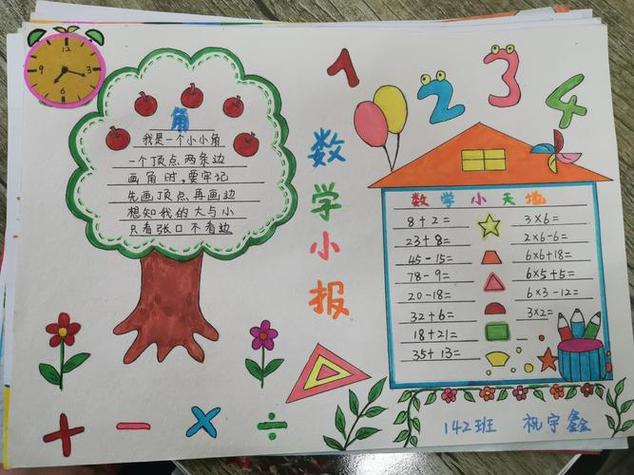 12
3
6
9
角
我是一个小小角
一个顶点两条边
画角时,要牢记
先画顶点再画边
想知我的大与小
只看张口不看边
数学小报
1 2 3 4
数学小天地
8+2=
23+8=
45-15=
78-9=
20-18=
32+6=
18+21=
35+13=
3×6=
2×6-6=
6×6+18=
6×5+5=
6×3-12=
3×2=
+ - × ÷
142班 祝宇鑫